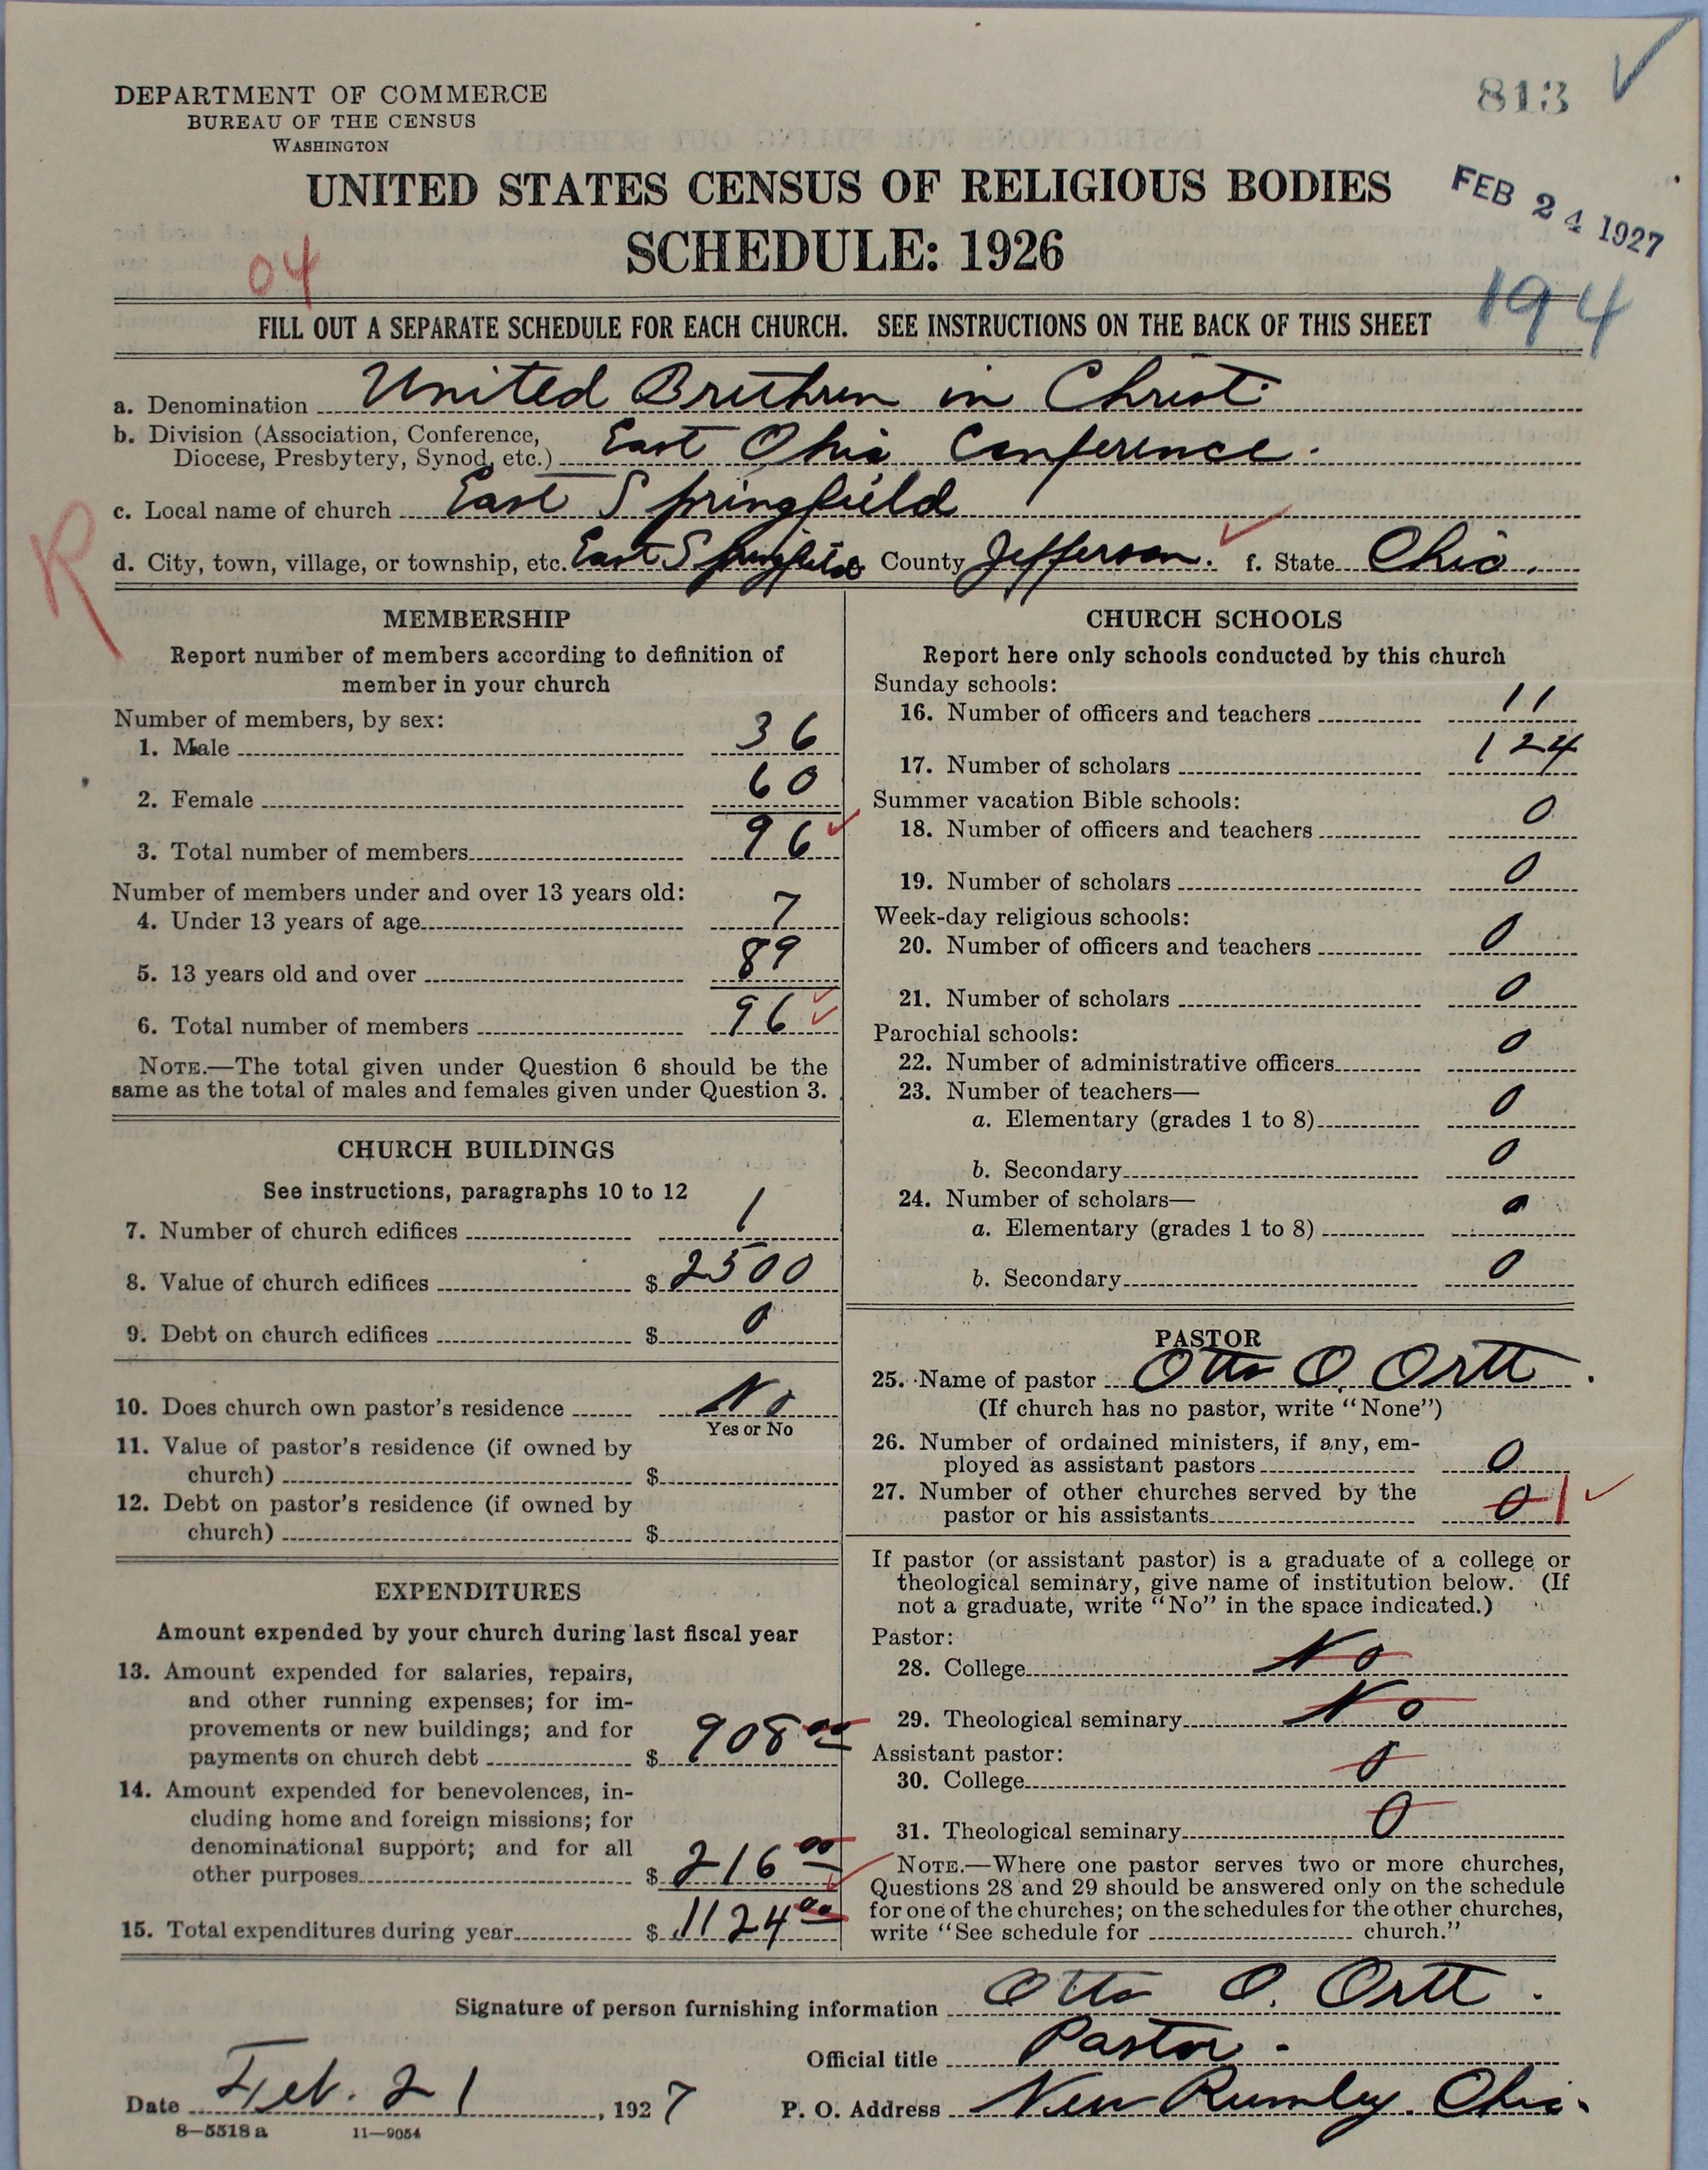 DEPARTMENT OF COMMERCE
BUREAU OF THE CENSUS
WASHINGTON
813
UNITED STATES CENSUS OF RELIGIOUS BODIES
FEB 24 1927
SCHEDULE: 1926
04
194
FILL OUT A SEPARATE SCHEDULE FOR EACH CHURCH. SEE INSTRUCTIONS ON THE BACK OF THIS SHEET
a. Denomination United Brethren in Christ
b. Division (Association, Conference,
Diocese, Presbytery, Synod, etc.) East Ohio Conference.
c. Local name of church East Springfield
R
d. City, town, village, or township, etc. East Springfield County Jefferson. f. State Ohio.
MEMBERSHIP
Report number of members according to definition of
member in your church
Number of members, by sex:
1. Male 36
2. Female 60
3. Total number of members 96
Number of members under and over 13 years old:
4. Under 13 years of age 7
5. 13 years old and over 89
6. Total number of members 96
NOTE.—The total given under Question 6 should be the
same as the total of males and females given under Question 3.
CHURCH BUILDINGS
See instructions, paragraphs 10 to 12
7. Number of church edifices 1
8. Value of church edifices $ 2500
9. Debt on church edifices $ 0
10. Does church own pastor's residence No
Yes or No
11. Value of pastor's residence (if owned by
church) $
12. Debt on pastor's residence (if owned by
church) $
EXPENDITURES
Amount expended by your church during last fiscal year
13. Amount expended for salaries, repairs,
and other running expenses; for im-
provements or new buildings; and for
payments on church debt $ 908 00
14. Amount expended for benevolences, in-
cluding home and foreign missions; for
denominational support; and for all
other purposes $ 216 00
15. Total expenditures during year $ 1124 00
CHURCH SCHOOLS
Report here only schools conducted by this church
Sunday schools:
16. Number of officers and teachers 11
17. Number of scholars 124
Summer vacation Bible schools:
18. Number of officers and teachers 0
19. Number of scholars 0
Week-day religious schools:
20. Number of officers and teachers 0
21. Number of scholars 0
Parochial schools:
22. Number of administrative officers 0
23. Number of teachers—
a. Elementary (grades 1 to 8) 0
b. Secondary 0
24. Number of scholars—
a. Elementary (grades 1 to 8) 0
b. Secondary 0
PASTOR
25. Name of pastor Otto O. Ortt.
(If church has no pastor, write "None")
26. Number of ordained ministers, if any, em-
ployed as assistant pastors 0
27. Number of other churches served by the
pastor or his assistants 0 1
If pastor (or assistant pastor) is a graduate of a college or
theological seminary, give name of institution below. (If
not a graduate, write "No" in the space indicated.)
Pastor:
28. College No
29. Theological seminary No
Assistant pastor:
30. College 0
31. Theological seminary 0
NOTE.—Where one pastor serves two or more churches,
Questions 28 and 29 should be answered only on the schedule
for one of the churches; on the schedules for the other churches,
write "See schedule for church."
Signature of person furnishing information Otto O. Ortt.
Official title Pastor.
Date Feb. 21, 1927 P. O. Address New Rumley, Ohio.
8—5518a 11—9054